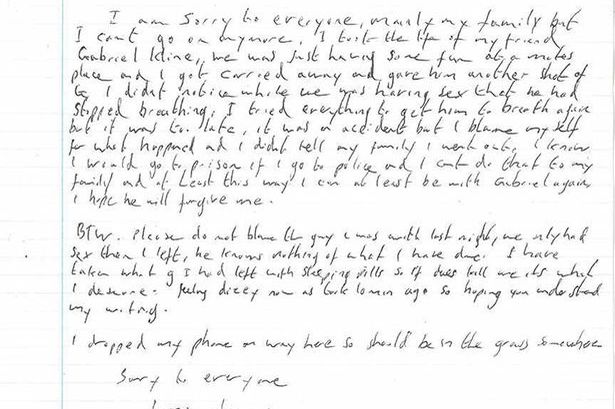 I am sorry to everyone, mainly my family but
I cant go on anymore, I took the life of my friend
Gabriel Kline, we was just having some fun at a mates
place and I got carried away and gave him another shot of
G I didnt notice while we was having sex that he had
stopped breathing, I tried everything to get him to breath again
but it was to late, it was a accident but I blame myself
for what happened and I didnt tell my family I went out. I know
I would go to prison if I go to police and I cant do that to my
family and at least this way I can at least be with Gabriel again
I hope he will forgive me.
BTW. Please do not blame the guy I was with last night, we only had
sex then I left, he knows nothing of what I have done. I have
taken what g I had left with sleeping pills so if it does kill me its what
I deserve. Feeling dizzy now as took 10 min ago so hoping you understand
my writing.
I dropped my phone on way here so should be in the grass somewhere
Sorry to everyone